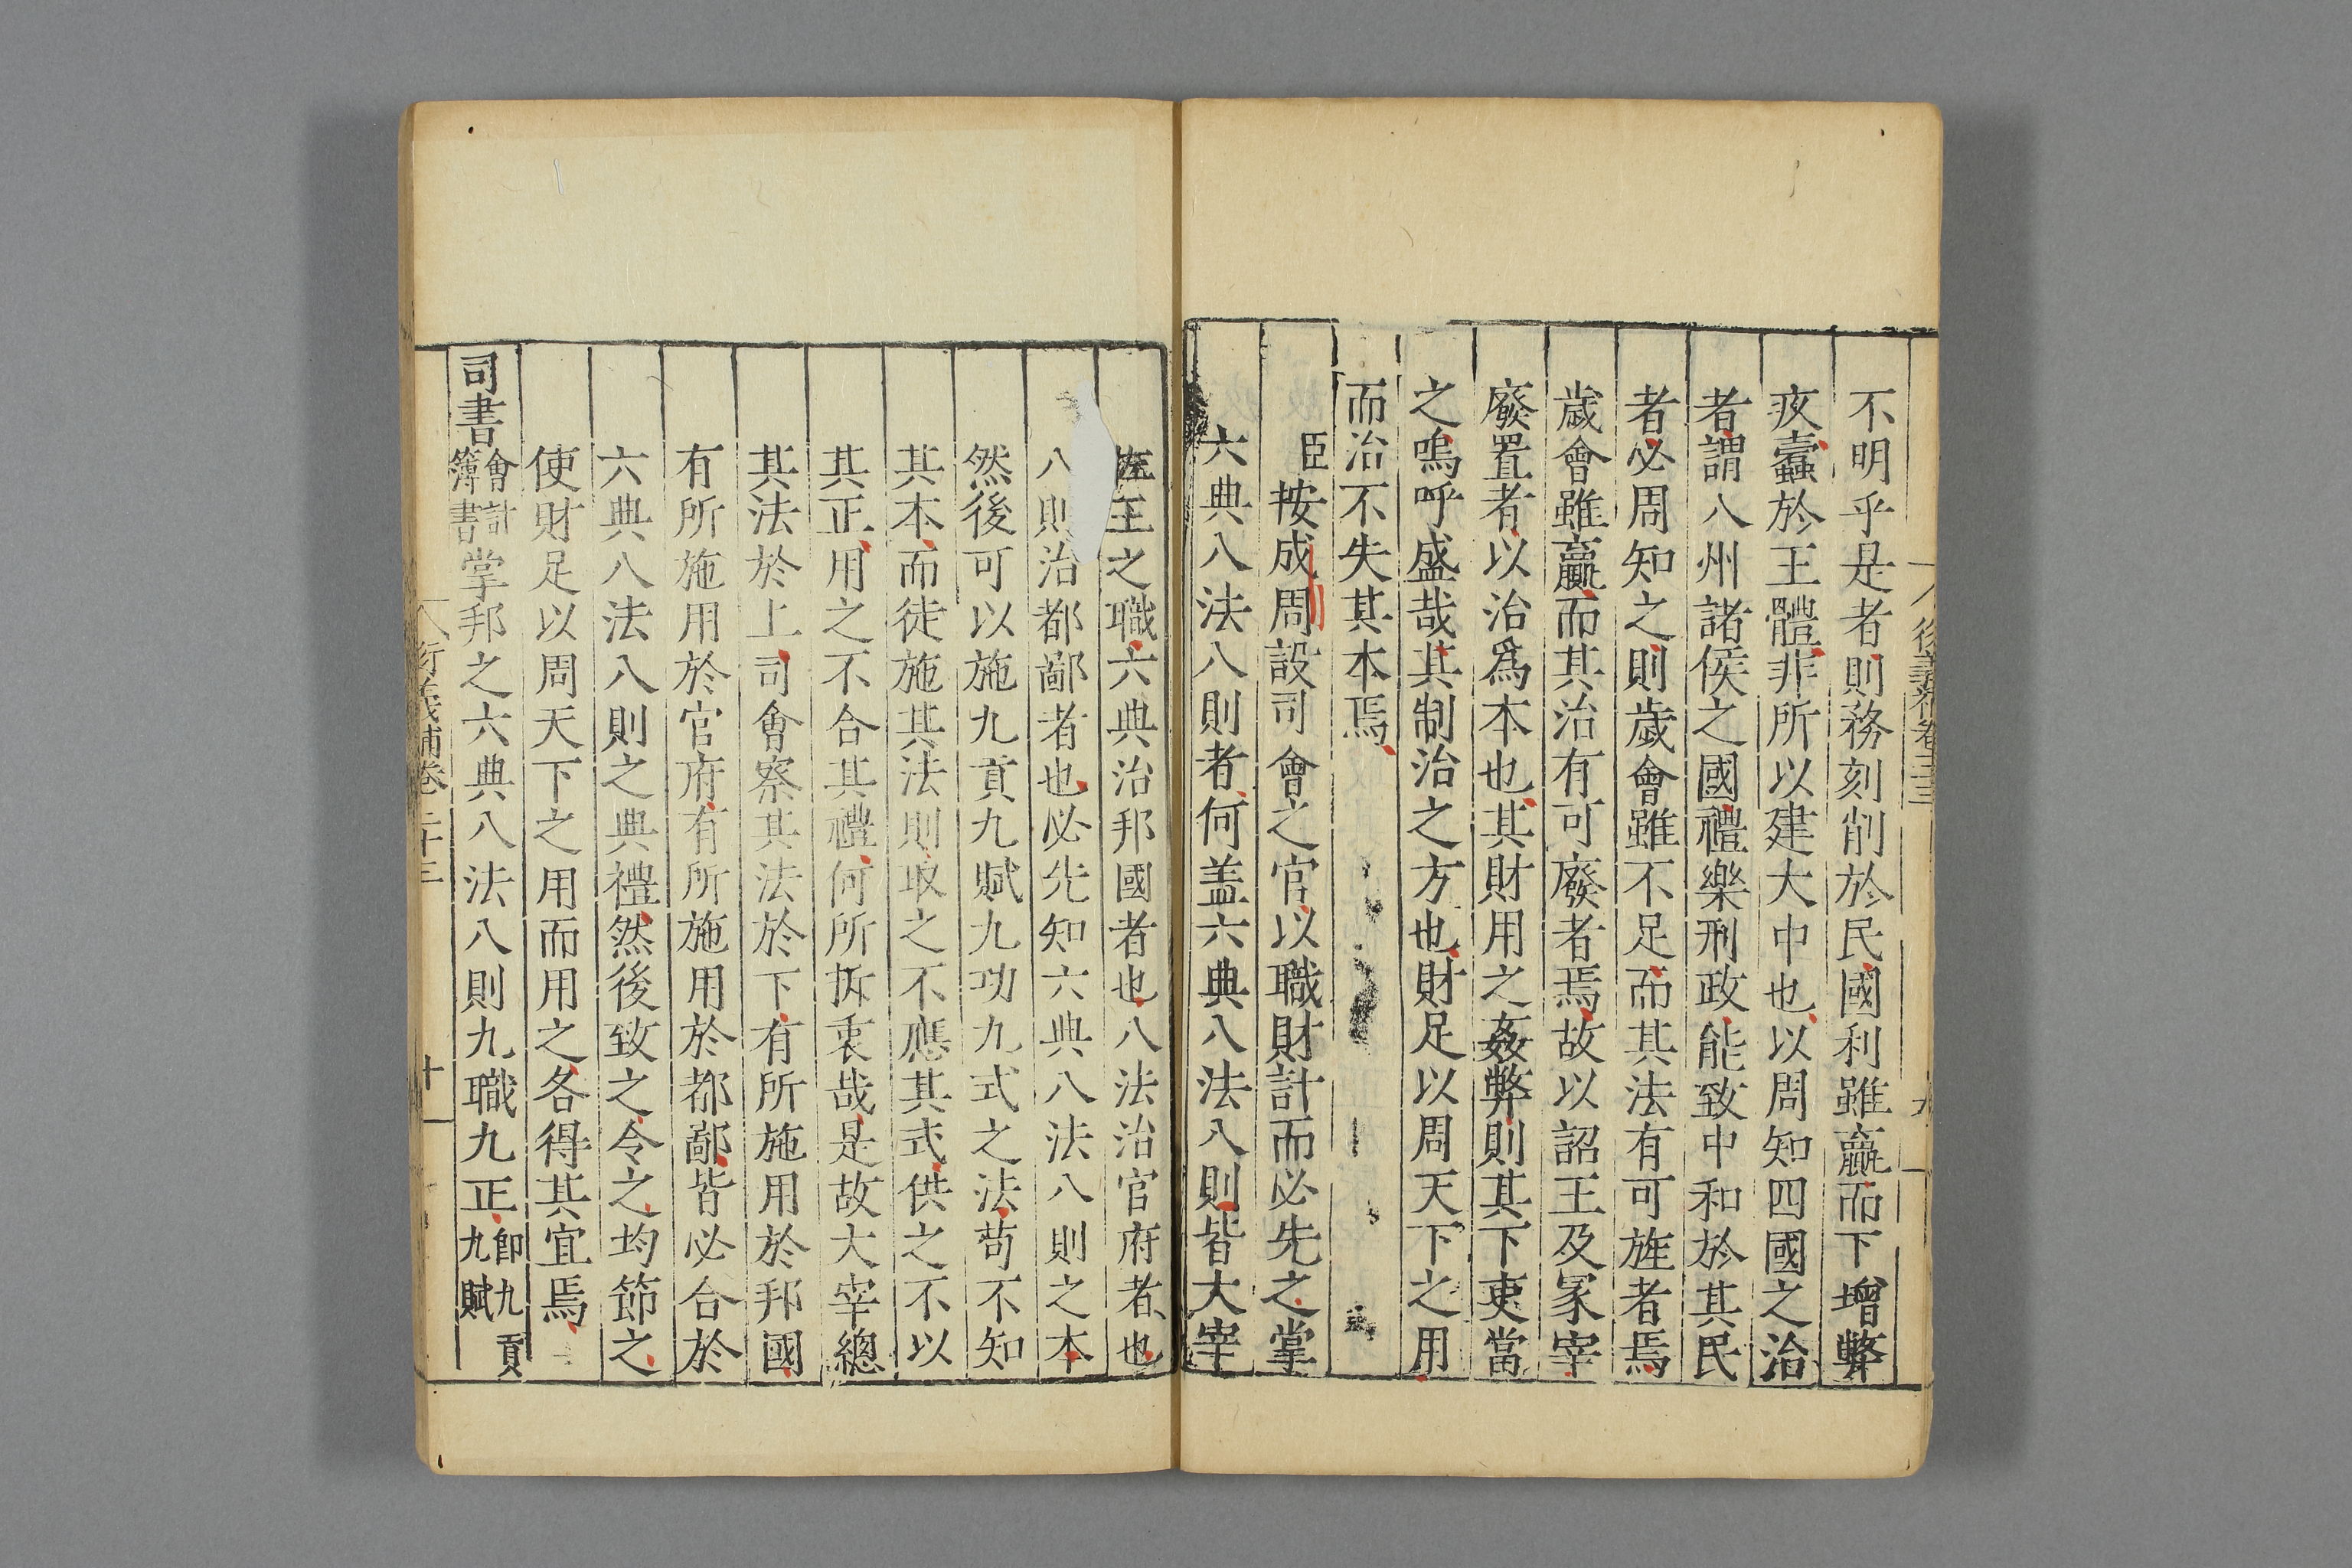 不明乎是者則務刻削於民國利雖贏而下增弊
疚蠧於王體非所以建大中也以周知四國之治
者謂八州諸侯之國禮樂刑政能致中和於其民
者必周知之則歲會雖不足而其法有可旌者焉
歲會雖贏而其治有可廢者焉故以詔王及冢宰
廢置者以治爲本也其財用之姦弊則其下吏當
之嗚呼盛哉其制治之方也財足以周天下之用
而治不失其本焉
臣按成周設司會之官以職財計而必先之掌
六典八法八則者何盖六典八法八則皆大宰
佐王之職六典治邦國者也八法治官府者也
八則治都鄙者也必先知六典八法八則之本
然後可以施九貢九賦九功九式之法苟不知
其本而徒施其法則取之不應其式供之不以
其正用之不合其禮何所折衷哉是故大宰總
其法於上司會察其法於下有所施用於邦國
有所施用於官府有所施用於都鄙皆必合於
六典八法八則之典禮然後致之令之均節之
使財足以周天下之用而用之各得其宜焉
司書會計簿書掌邦之六典八法八則九職九正即九貢九賦
衍義補卷二十三
十